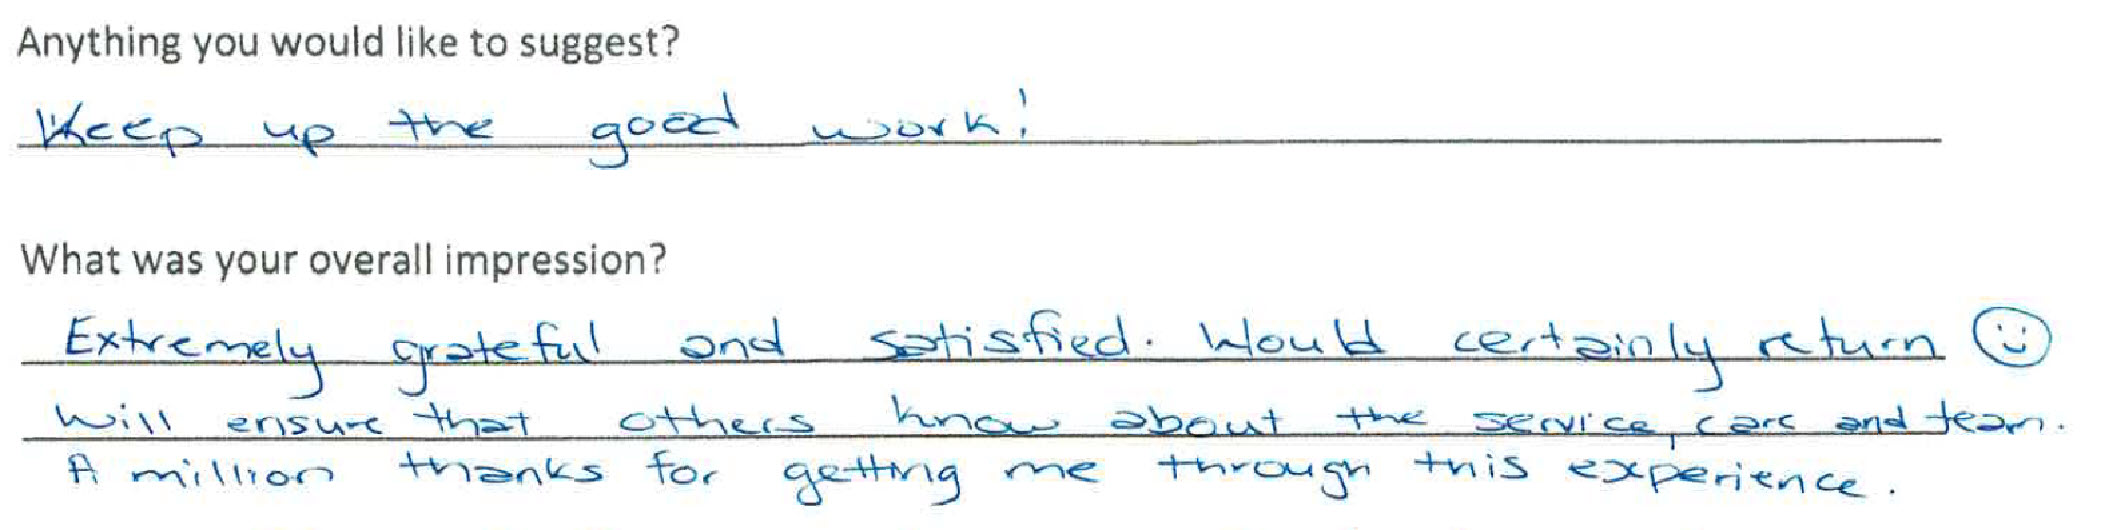 Anything you would like to suggest?
Keep up the good work!
What was your overall impression?
Extremely grateful and satisfied. Would certainly return ☺
Will ensure that others know about the service, care and team.
A million thanks for getting me through this experience.